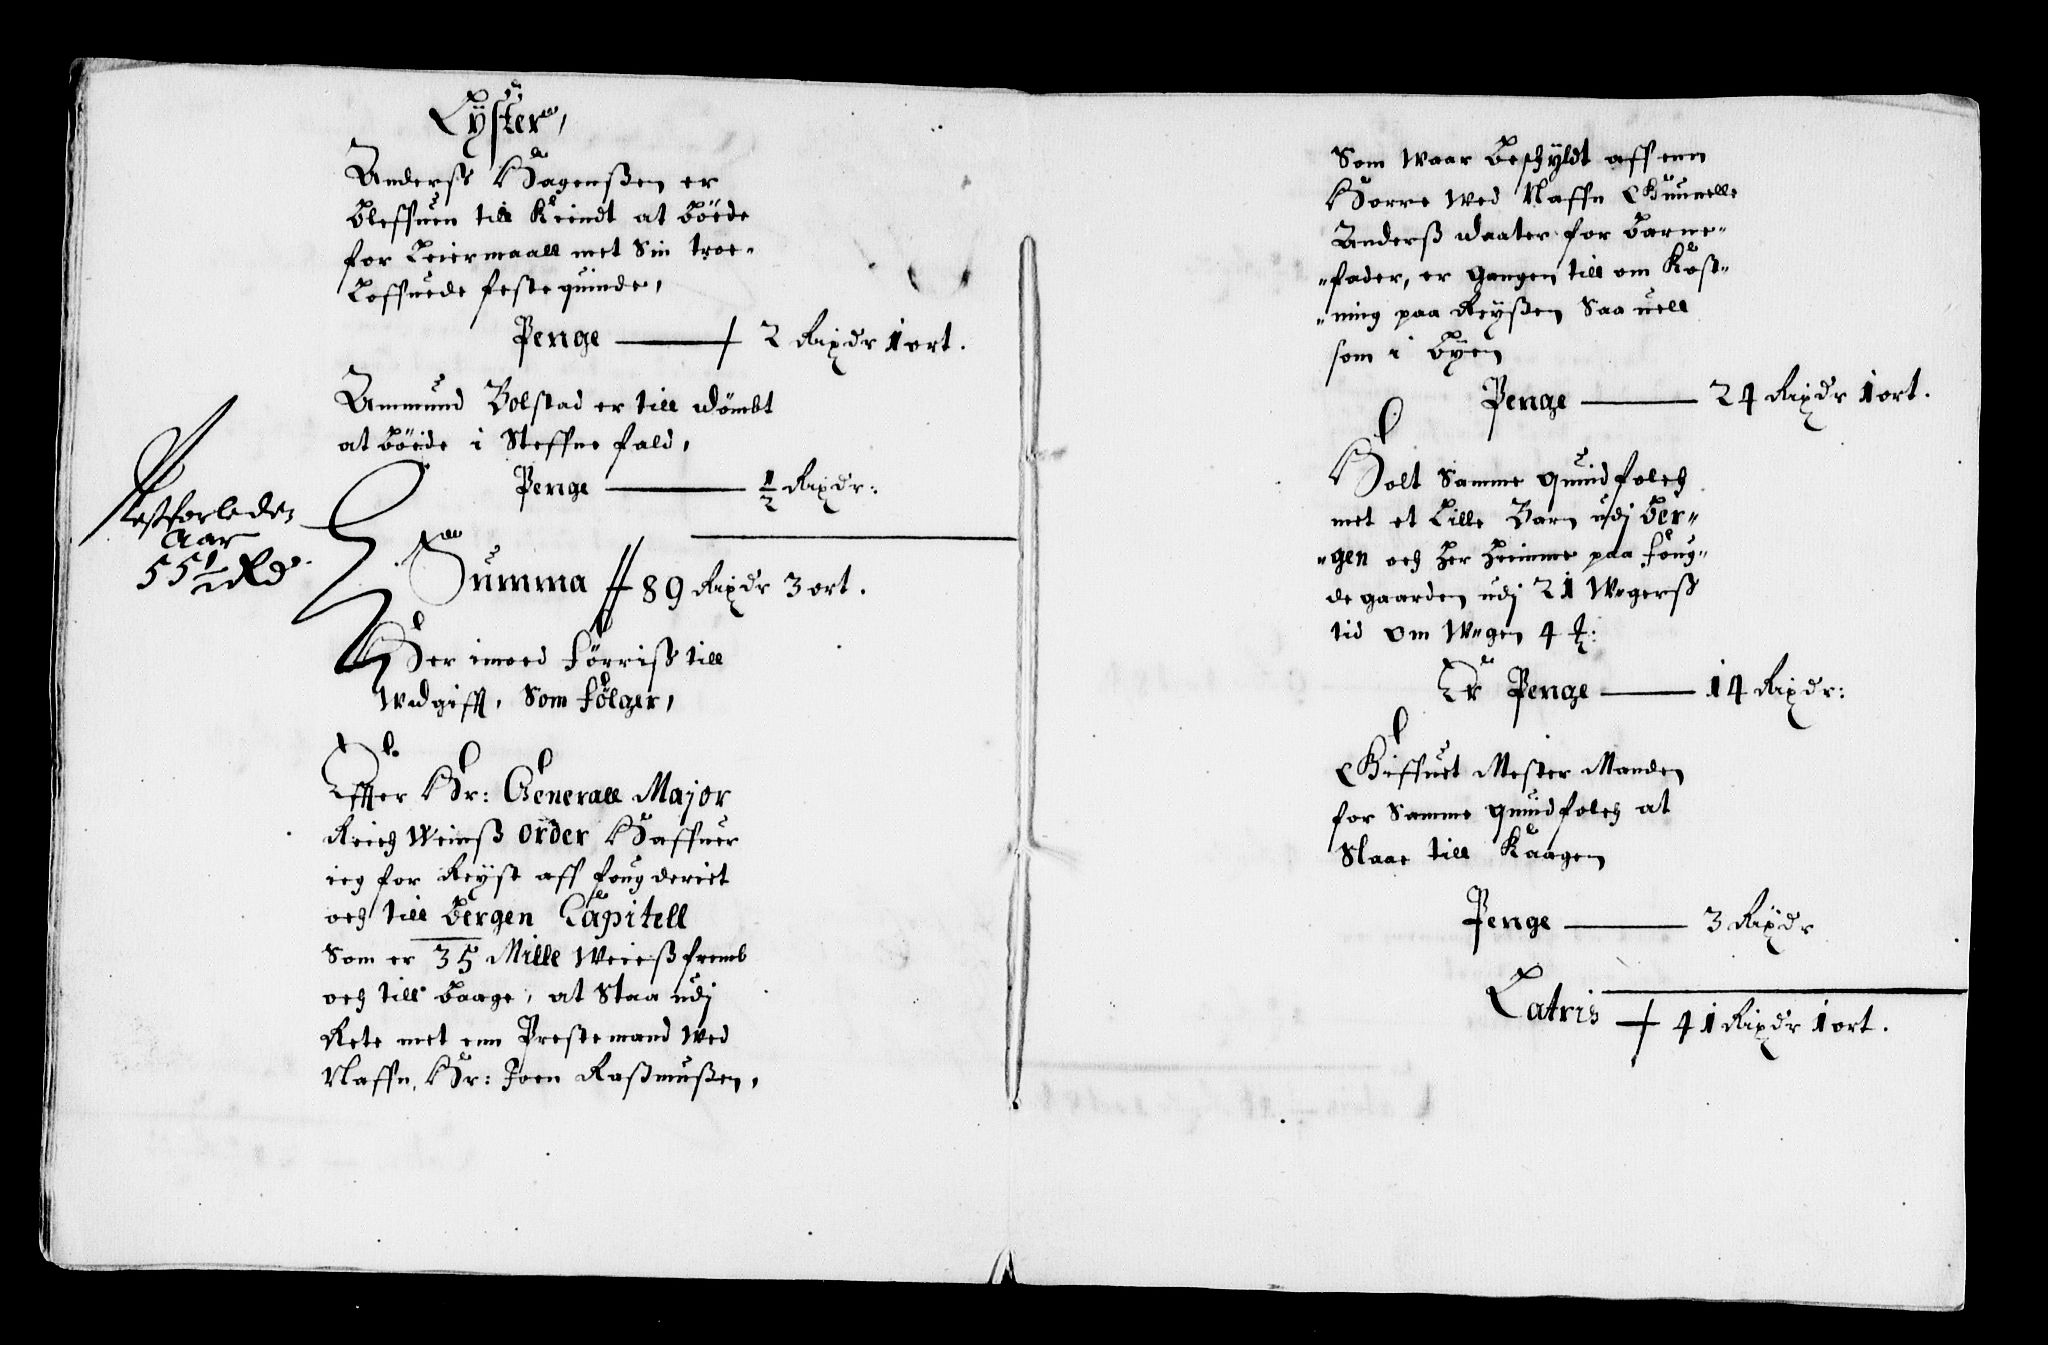 Lyster,
Anderss Hagenßen er
bleffuen till Kiendt at bøede
for Leiermaall met Sin troe-
Loffuede feste quinde,
Penge — 2 Rixdr 1 ort.
Ammund Bolstad er till dømbt
at bøede i Steffne fald,
Penge — ½ Rixdr:
Nestforleden
Aar
55½ Rd
Summa 89 Rixdr 3 ort.
Her imoed førriss till
Wdgifft, Som følger,
Effter Hr: Generall Major
Reich Weinß order Haffuer
ieg for Reyst aff fougderiet
och till bergen Capitell
Som er 35 Mille Weiess fremb
och till baage, at Staa udj
Rete met enn Prestemand wed
Naffn, Hr: Joen Raßmußen,
Som waar beschyldt aff enn
Horre wed Naffn Gunnelle
Anderß daater for barne-
-fader, er gangen till om Kost-
-ning paa Reyßen Saa uell
som i byen
Penge — 24 Rixdr 1 ort.
Holt Samme quindfolch
met et Lille Barn udj ber-
-gen och her hiemme paa foug-
de gaarden udj 21 Wgerss
tid om Wgen 4
Er Penge — 14 Rixdr:
Giffuet Mester Manden
for Samme quindfolch at
Slaae till Kaagen
Penge — 3 Rixdr
Latris 41 Rixdr 1 ort.